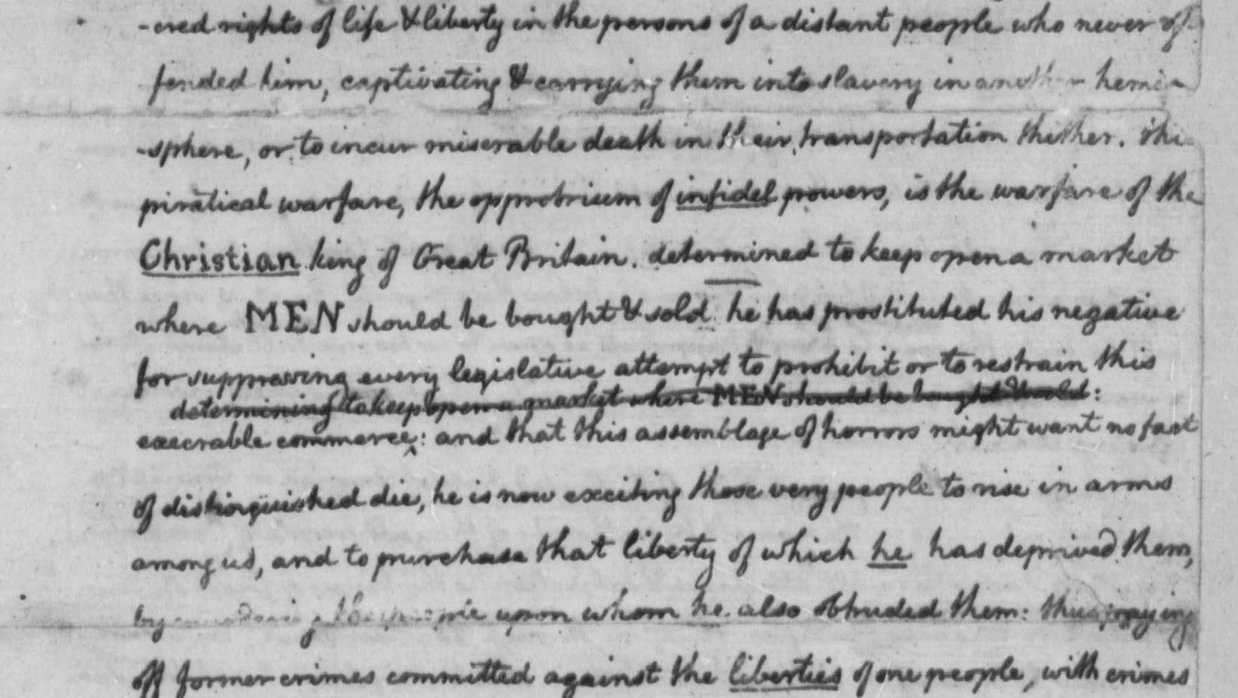 -cred rights of life & liberty in the persons of a distant people who never of
fended him, captivating & carrying them into slavery in another hemi-
-sphere, or to incur miserable death in their transportation thither. this
piratical warfare, the opprobrium of infidel powers, is the warfare of the
Christian king of Great Britain. determined to keep open a market
where MEN should be bought & sold he has prostituted his negative
for suppressing every legislative attempt to prohibit or to restrain this
determining to keep open a market where MEN should be bought & sold:
execrable commerce: and that this assemblage of horrors might want no fact
of distinguished die, he is now exciting those very people to rise in arms
among us, and to purchase that liberty of which he has deprived them,
by upon whom he also obtruded them: thus paying
off former crimes committed against the liberties of one people, with crimes